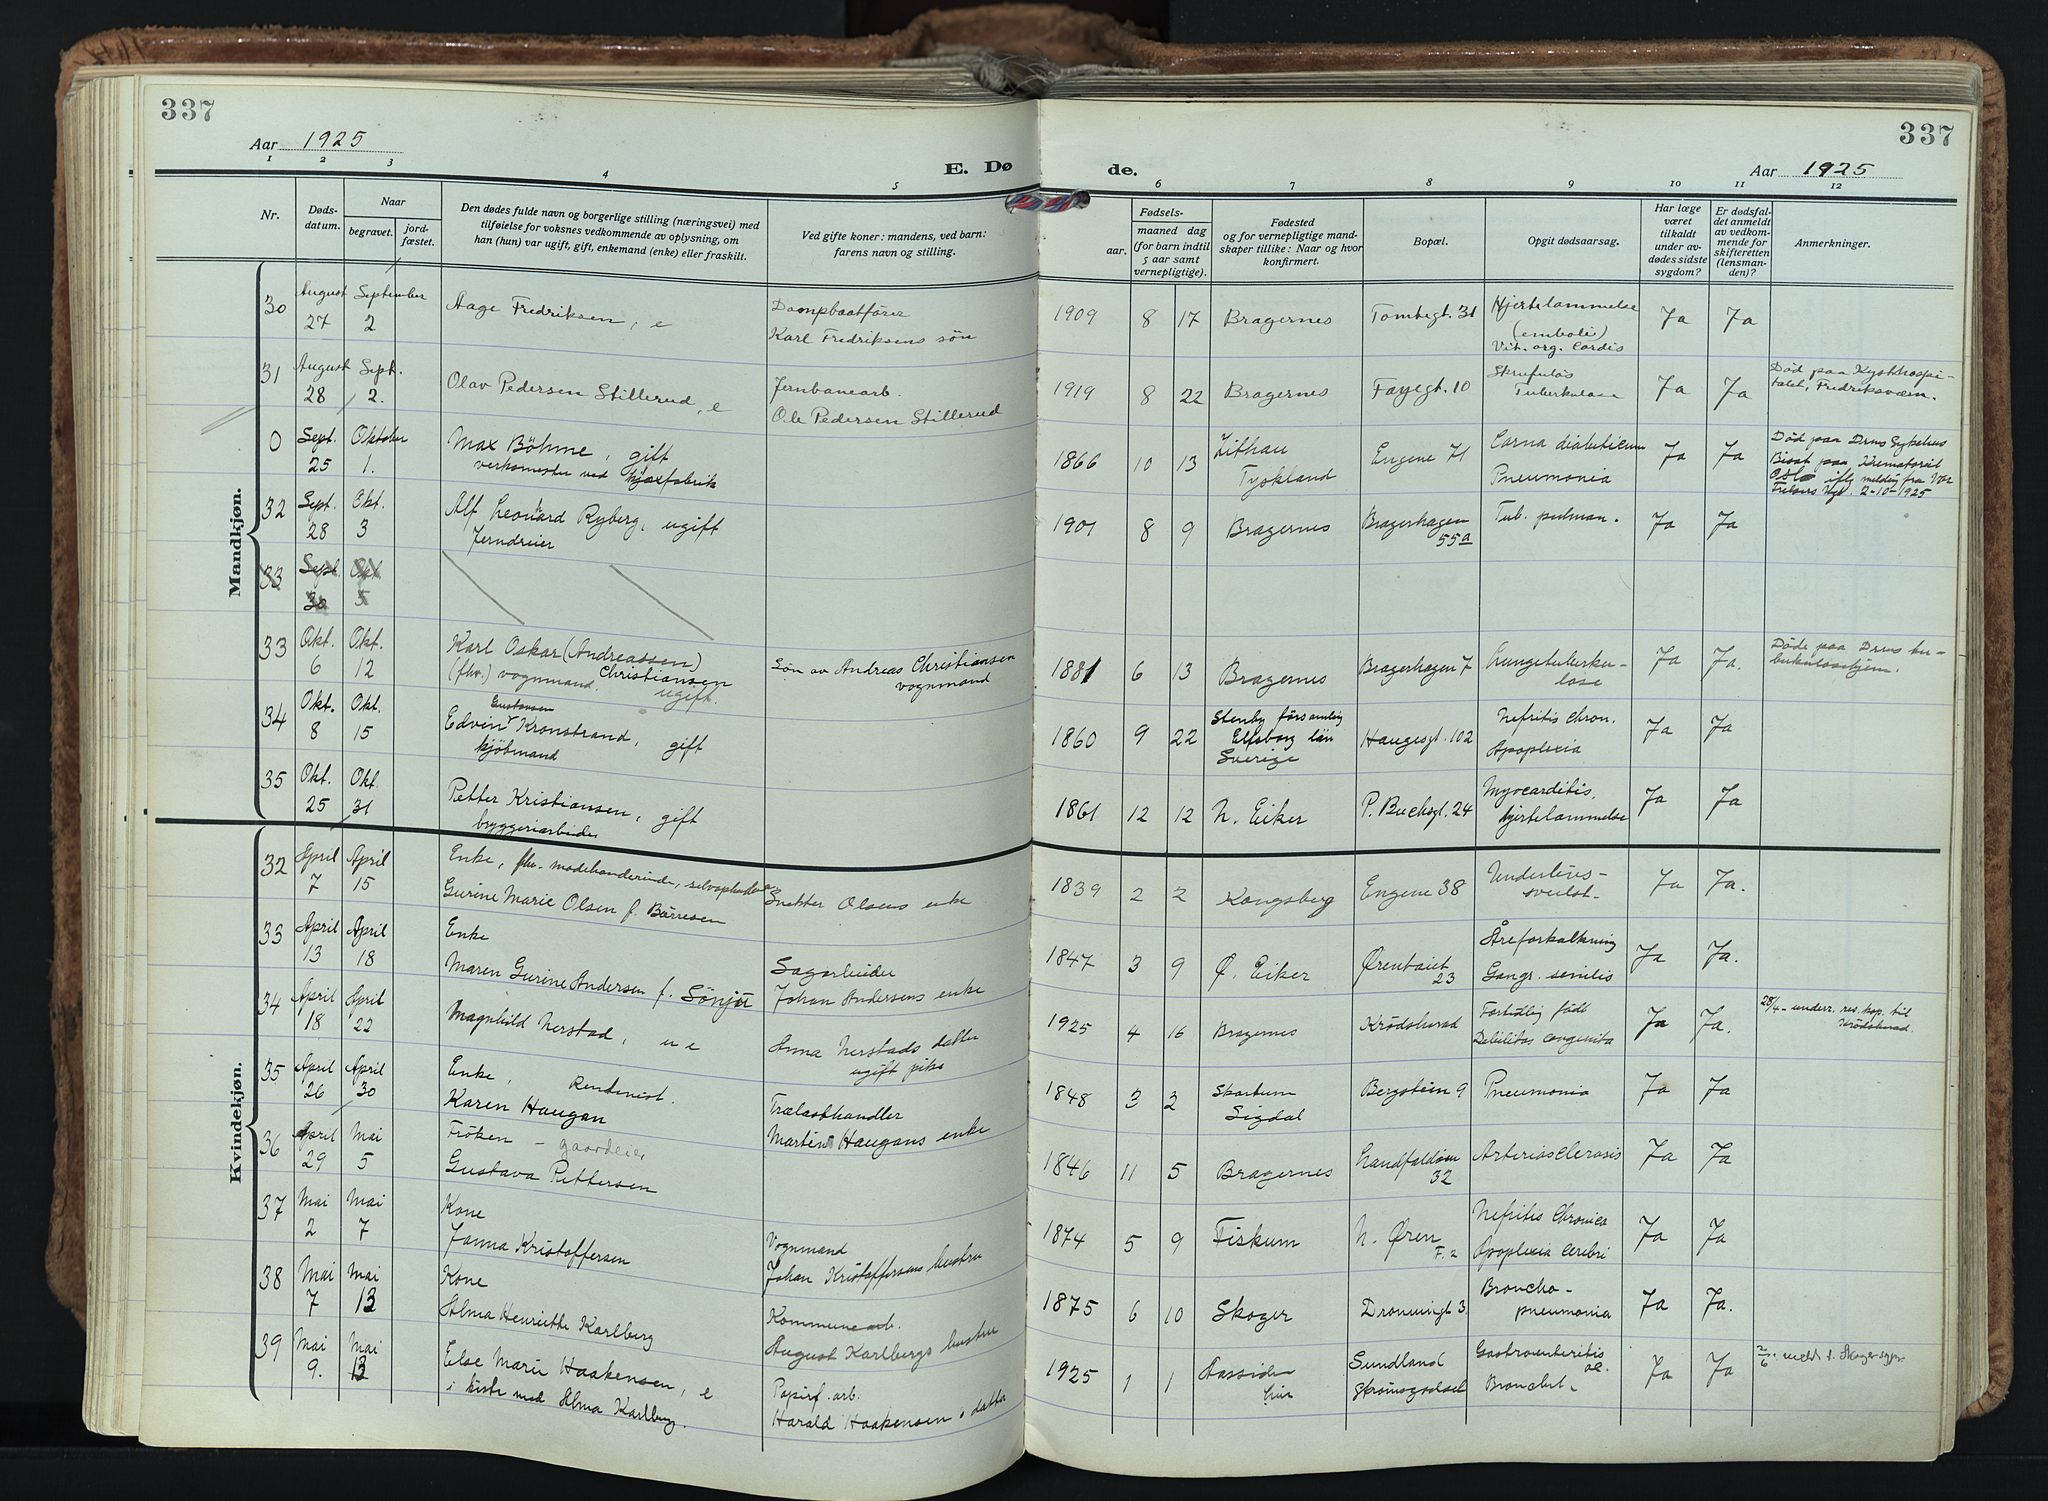 337
337
Aar 1925
E. Dø
de.
Aar 1925
1 2 3 4 5 6 7 8 9 10 11 12
Nr.
Døds-
datum.
Naar
begravet.
jord-
fæstet.
Den dødes fulde navn og borgerlige stilling (næringsvei) med
tilføielse for voksnes vedkommende av oplysning, om
han (hun) var ugift, gift, enkemand (enke) eller fraskilt.
Ved gifte koner: mandens, ved barn:
farens navn og stilling.
Fødsels-
aar.
maaned dag
(for barn indtil
5 aar samt
vernepligtige).
Fødested
og for vernepligtige mand-
skaper tillike: Naar og hvor
konfirmert.
Bopæl.
Opgit dødsaarsag.
Har læge
været
tilkaldt
under av-
dødes sidste
sygdom?
Er dødsfal-
det anmeldt
av vedkom-
mende for
skifteretten
(lensman-
den)?
Anmerkninger.
Mandkjøn.
30 August 27 September 2 Aage Fredriksen, e
Dampbaatfører
Karl Fredriksens søn
1909 8 17 Bragernes Tomtegt. 31 Hjertelammelse
(emboli)
Vit. org. Cordis
Ja Ja
31 August 28 Sept. 2. Olav Pedersen Stillerud, e
Jernbanearb.
Ole Pedersen Stillerud
1919 8 22 Bragernes Fayegt. 10 Skrufuløs
Tuberkulose
Ja Ja
Død paa Kysthospi-
talet, Fredriksværn.
0 Sept. 25 Oktober 1. Max Böhme, gift
verksmester ved
1866 10 13 Zithau
Tyskland
Engene 71
Coma diabeticum
Pneumonia
Ja Ja
Død paa Drms Sykehus
Bisat paa Krematoriet
Oslo iflg melding fra Vor
Frelsers 2-10-1925
32 Sept. 28 Okt. 3 Alf Leonard Ryberg, ugift
Jerndreier
1901 8 9 Bragernes Bragerhagen
55a
Tub. pulman.
Ja Ja
33 Sept. 30 Okt 5
33 Okt. 6 Okt. 12 Karl Oskar (Andreassen)
(fhv.) vognmand. Christiansen
ugift.
Søn av Andreas Christiansen
vognmand
1881 6 13 Bragernes Bragerhagen 7 Lungetuberku-
lose
Ja Ja.
Døde paa Drms tu-
berkulosehjem.
34 Okt. 8 Okt. 15 Gustavsen
Edvin Kronstrand, gift
kjøbmand
1860 9 22 Stenby församling
Elfsborg län
Sverige
Haugesgt. 102
Nefritis chron.
Apoplexia
Ja Ja
35 Okt. 25 Okt. 31 Petter Kristiansen, gift
bryggeriarbeider
1861 12 12 N. Eiker P. Buchsgt. 24 Myocarditis,
hjertelammelse
Ja Ja
Kvindekjøn.
32 April 7 April 15 Enke, fhv. modehandlerinde,
Gurine Marie Olsen f. Børresen
Snekker Olsens enke
1839 2 2 Kongsberg Engene 38 Underlivs-
svulst.
Ja Ja.
33 April 13 April 18 Enke
Maren Gurine Andersen f.
Sagarbeider
Johan Andersens enke
1847 3 9 Ø. Eiker
23
Åreforkalkning
Gangr. senilis
Ja Ja.
34 April 18 April 22 Magnhild Nerstad, u e
Anna Nerstads datter
ugift pike
1925 4 16 Bragernes Krødsherad Fortidlig født
Debilitas congenita
Ja Ja.
28/4- underr. res. kap. til
Krødsherad.
35 April 26 April 30 Enke, Rendenist.
Karen Haugan
Trælasthandler
Martin Haugans enke
1848 3 2 Skartum
Sigdal
Bergstien 9 Pneumonia
Ja Ja
36 April 29 Mai 5 Frøken - gaardeier
Gustava Pettersen
1846 11 5 Bragernes Landfaldøen
32
Arteriosclerosis
Ja Ja
37 Mai 2 Mai 7 Kone
Janna Kristoffersen
Vognmand
Johan Kristoffersens hustru
1874 5 9 Fiskum N. Øren
F. 2
Nefritis Chronica
Apoplexia Cerebri
Ja Ja
38 Mai 7 Mai 13 Kone
Alma Henriette Karlberg
Kommunearb.
August Karlbergs hustru
1875 6 10 Skoger Dronningt 3 Broncho-
pneumonia
Ja Ja.
39 Mai 9. Mai 13 Else Marie Haakensen, e
i kiste med Alma Karlberg.
Papirf. arb.
Harald Haakensen's datter
1925 1 1 Sundland
Gastroenteritis
ac.
Bronchit.
Ja Ja
2/6. meldt t. Skoger